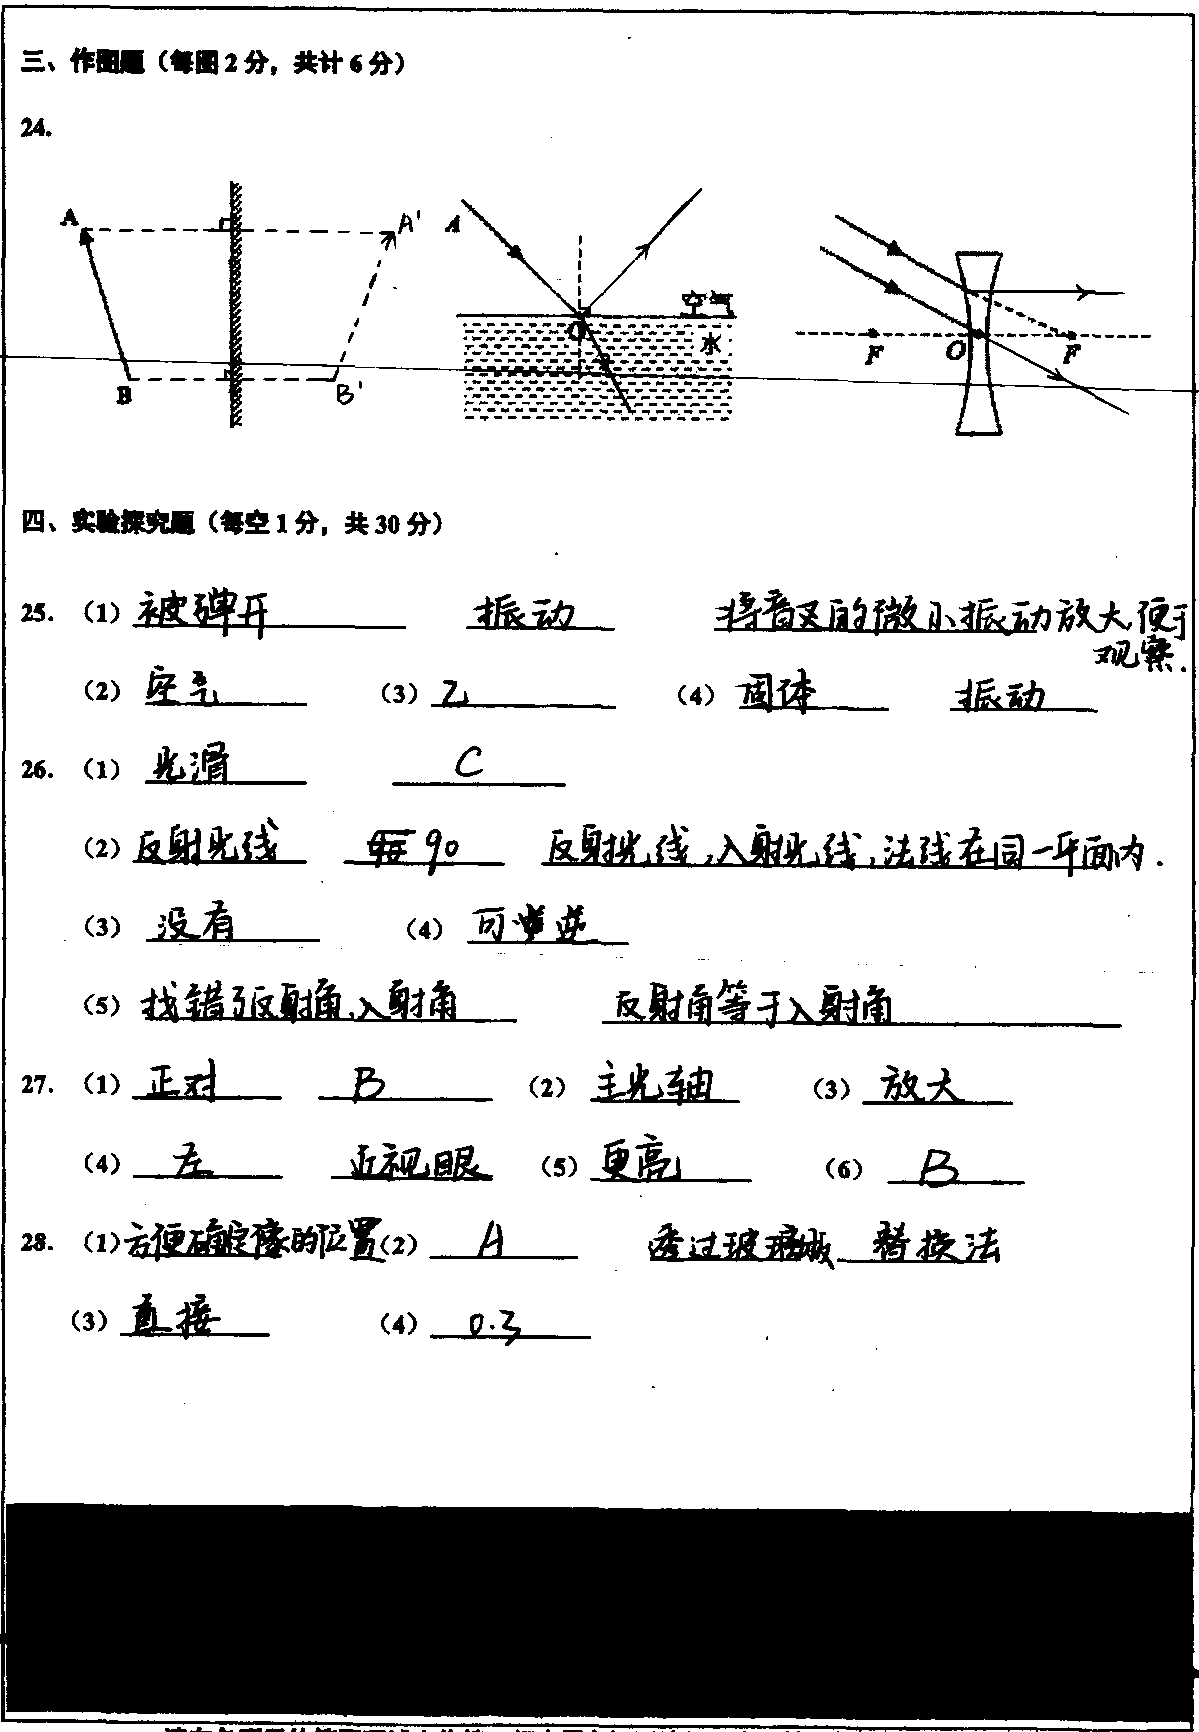 三、作图题（每图 2 分，共计 6 分）
24.
A A' B B'
A O 空气 水
F O F
四、实验探究题（每空 1 分，共 30 分）
25. （1）被弹开 振动 将音叉的微小振动放大，便于
观察.
（2）空气 （3）乙 （4）固体 振动
26. （1）光滑 C
（2）反射光线 90 反射光线，入射光线，法线在同一平面内.
（3）没有 （4）可逆
（5）找错了反射角、入射角 反射角等于入射角
27. （1）正对 B （2）主光轴 （3）放大
（4）左 近视眼 （5）更高 （6）B
28. （1）方便确定像的位置 （2）A 透过玻璃板 替换法
（3）直接 （4）0.3